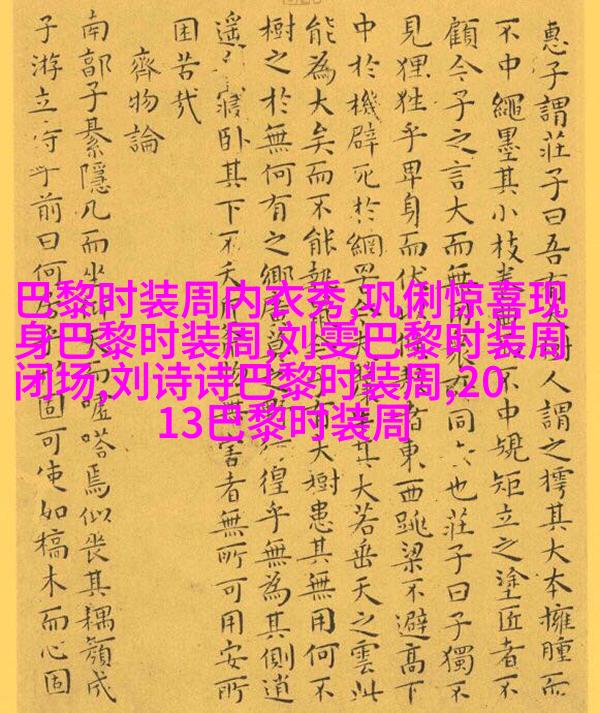 巴黎时装周内衣秀,巩俐惊喜现
身巴黎时装周,刘雯巴黎时装周
闭场,刘诗诗巴黎时装周,20
13巴黎时装周
惠子謂莊子曰吾有樹人謂之樗其大本擁腫而
不中繩墨其小枝不中規矩立之塗匠者不
顧今子之言大而無用同也莊子曰子獨不
見狸狌乎卑身而伏者東西跳梁不避高下
中於機辟死於網其大若垂天之雲此
能為大矣而不能大樹患其無用何不
樹之於無何有之鄉徨乎無為其側逍
遙寢卧其下不夭害者無所可用安所
困苦哉
齊物論
南郭子綦隱几而坐天而噓嗒焉似喪其耦顏成
子游立侍乎前曰何固可使如槁木而心固